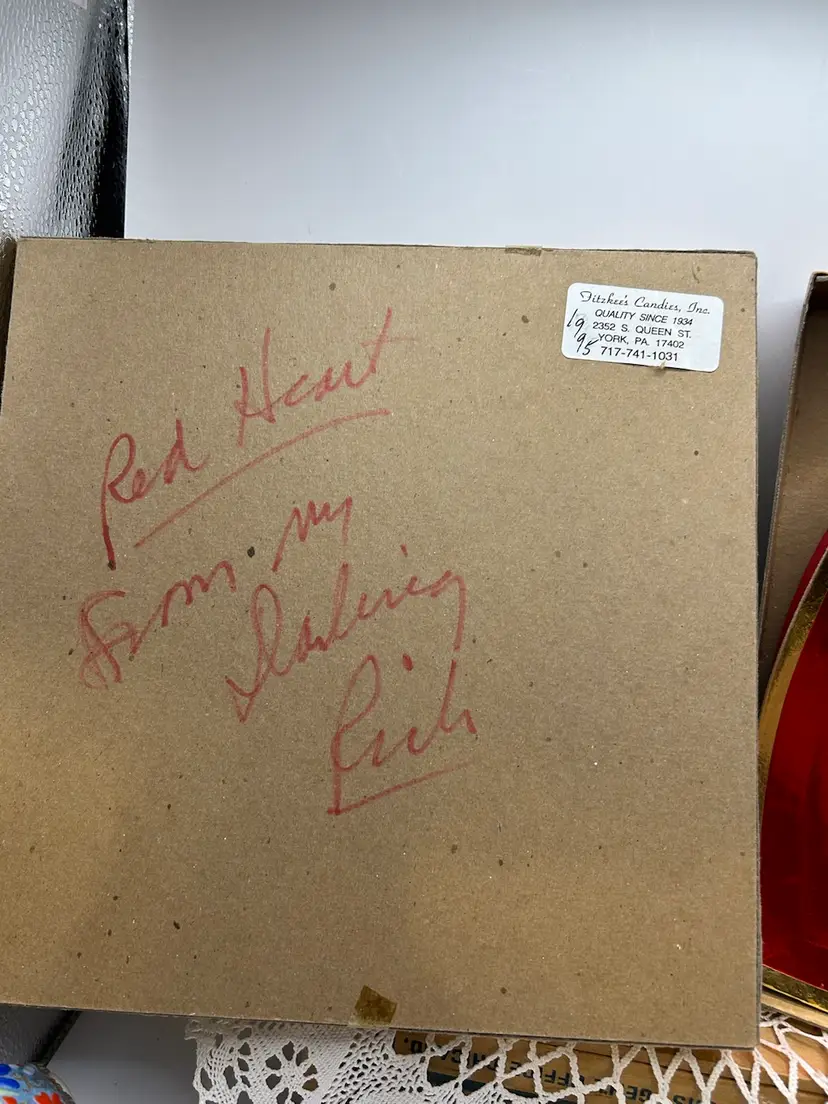 Fitzkee's Candies, Inc.
QUALITY SINCE 1934
19 2352 S. QUEEN ST.
95 YORK, PA. 17402
717-741-1031
Red Heart
From my
Darling
Rich